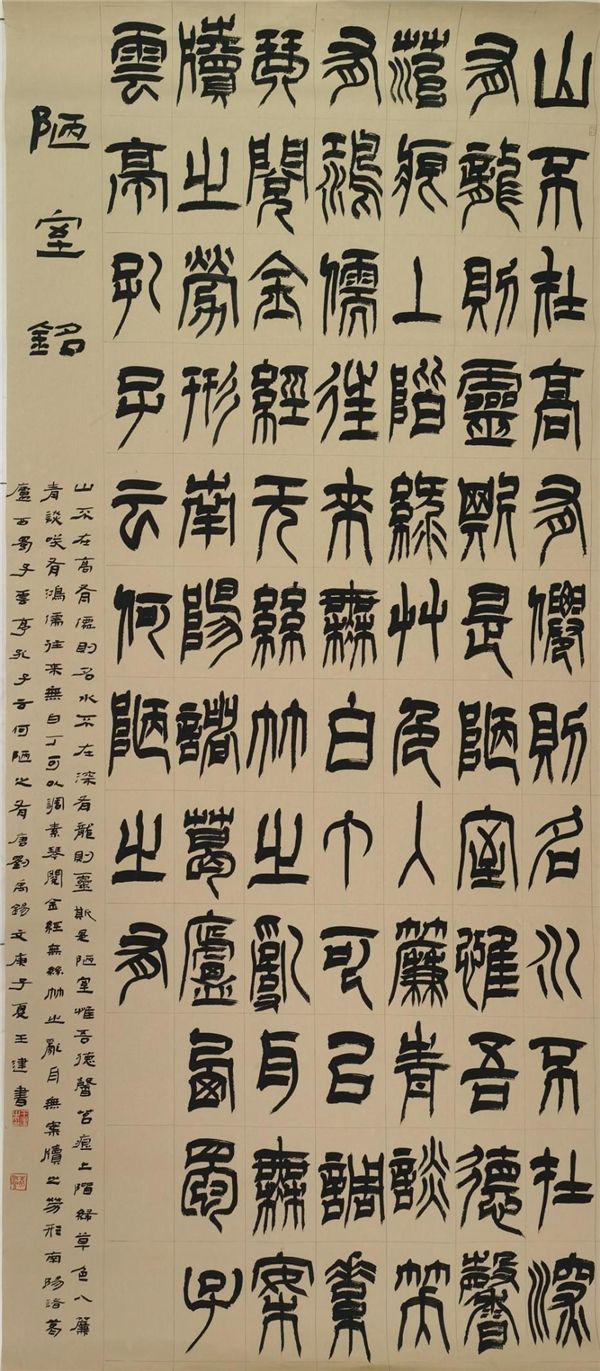 山不在高有僊則名水不在深
有龍則靈斯是陋室惟吾德馨
菭痕上階綠艸色入簾青談笑
有鴻儒往來無白丁可以調素
琴閱金經无絲竹之亂耳無案
牘之勞形南陽諸葛廬西蜀子
雲亭孔子云何陋之有
陋室銘
山不在高有僊則名水不在深有龍則靈斯是陋室惟吾德馨苔痕上階綠草色入簾
青談咲有鴻儒往來無白丁可以調素琴閱金經無絲竹之亂耳無案牘之勞形南陽諸葛
廬西蜀子雲亭孔子云何陋之有唐劉禹錫文庚子夏王建書